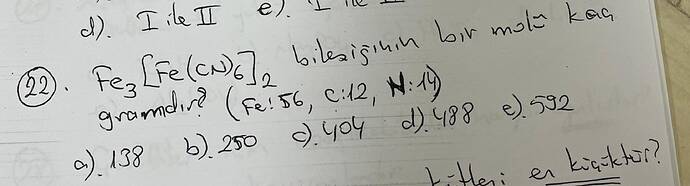 d). I ile II e). I ile II
22. Fe3[Fe(CN)6]2 bileşiğinin bir molü kaç
gramdır? (Fe:56, C:12, N:14)
a). 138 b). 250 c). 404 d). 488 e). 592
en küçüktür?